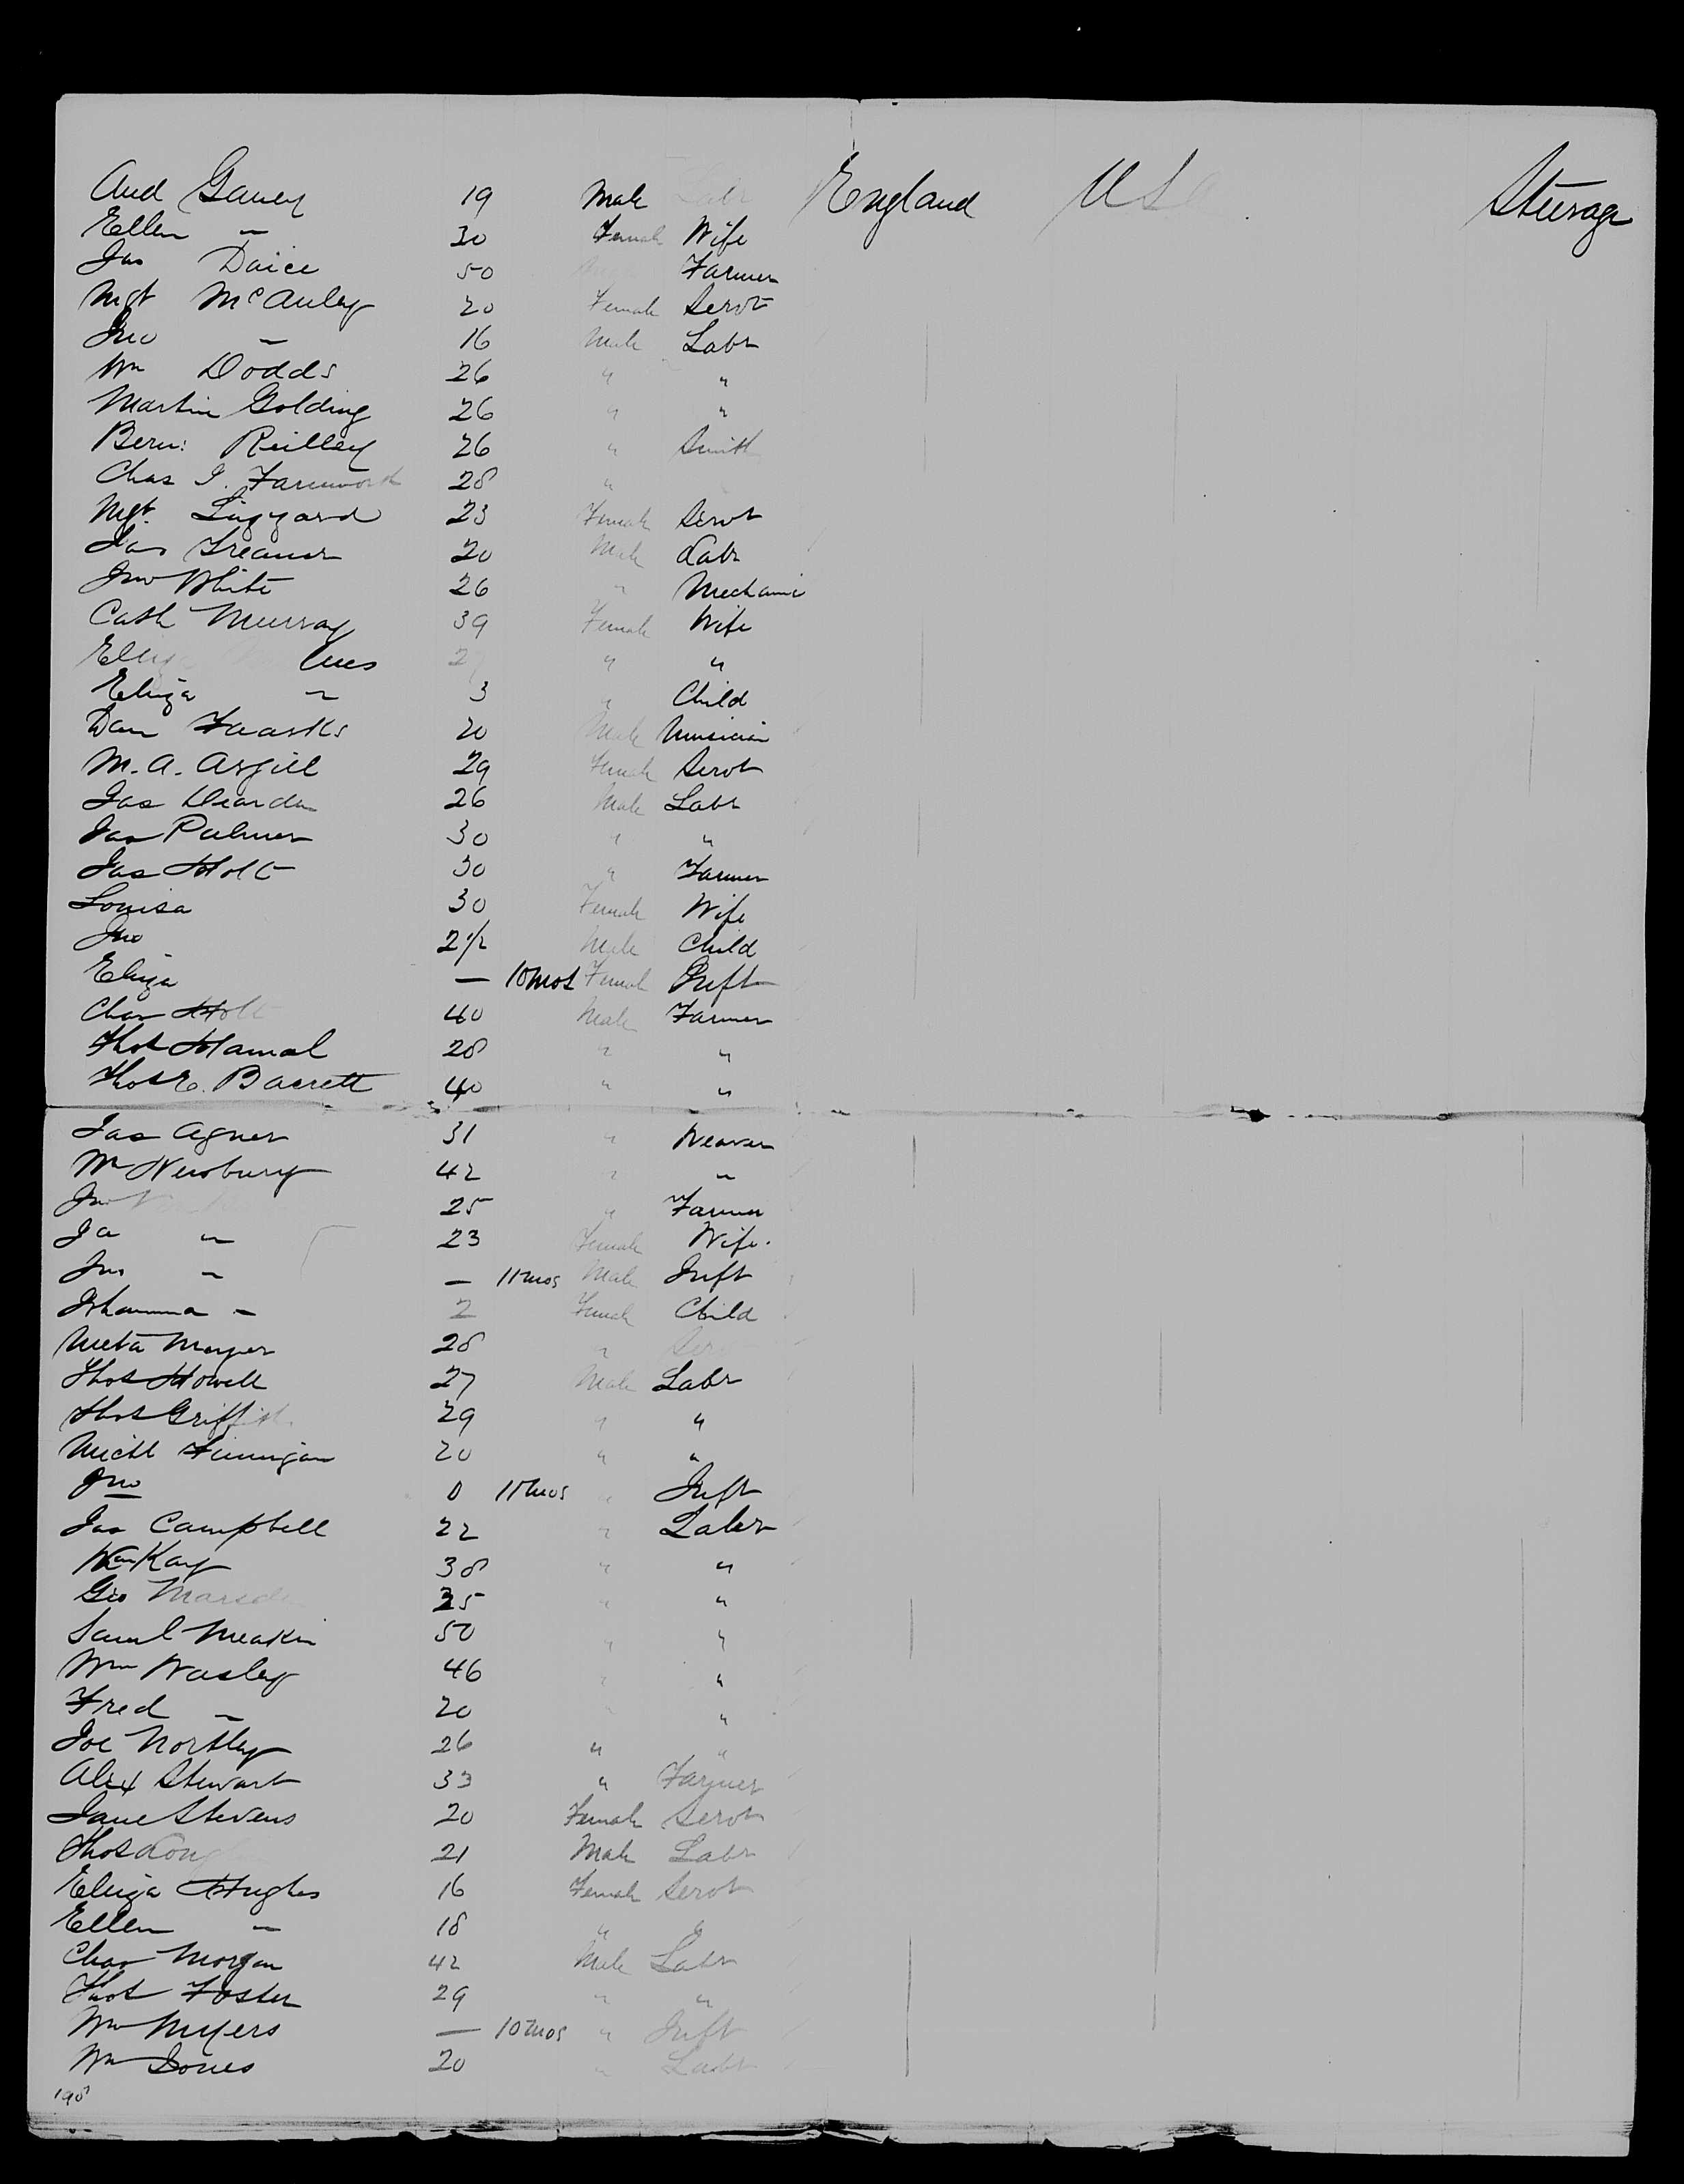 And Gavey 19 Male Labr England USA Steerage
Ellen " 30 Female Wife
Jas Daice 50 Farmer
Mgt McAuley 20 Female Servt
Jno " 16 Male Labr
Wm Dodds 26 " "
Martin Golding 26 " "
Bern: Reilley 26 " Smith
Chas J. Farnworth 28 "
Mgt. Lizzard 23 Female Servt
Jas Treanor 20 Male Labr
Jno White 26 " Mechanic
Cath Murray 39 Female Wife
Eliza " "
Eliza " 3 " Child
Dan 20 Male Musician
M. A. Argill 29 Female Servt
Jas Dearden 26 Male Labr
Jas Palmer 30 " "
Jas Holt 30 " Farmer
Louisa 30 Female Wife
Jno 2 1/2 Male Child
Eliza — 10 mos Female Inft
Chas Holt 40 Male Farmer
Thos Hamal 28 " "
Thos E. Barrett 40 " "
Jas Agner 31 " Weaver
Wm Newbury 42 " "
Jno 25 " Farmer
Ja " 23 Female Wife.
Jno " — 11 mos Male Inft
Johanna " 2 Female Child
Meta Meyer 28 " Servt
Thos Howell 27 Male Labr
Thos Griffith 29 " "
Michl Finnigan 20 " "
Jno 0 11 mos " Inft
Jas Campbell 22 " Labr
Wm Kay 38 " "
Geo Marsden 35 " "
Saml Meakin 50 " "
Wm Wasley 46 " "
Fred " 20 " "
Joe Northey 26 " "
Alex Stewart 33 " Farmer
Jane Stevens 20 Female Servt
Thos 21 Male Labr
Eliza Hughes 16 Female Servt
Ellen " 18 " "
Chas Morgan 42 Male Labr
Thos Foster 29 " "
Wm Myers — 10 mos " Inft
Wm Jones 20 " Labr
198